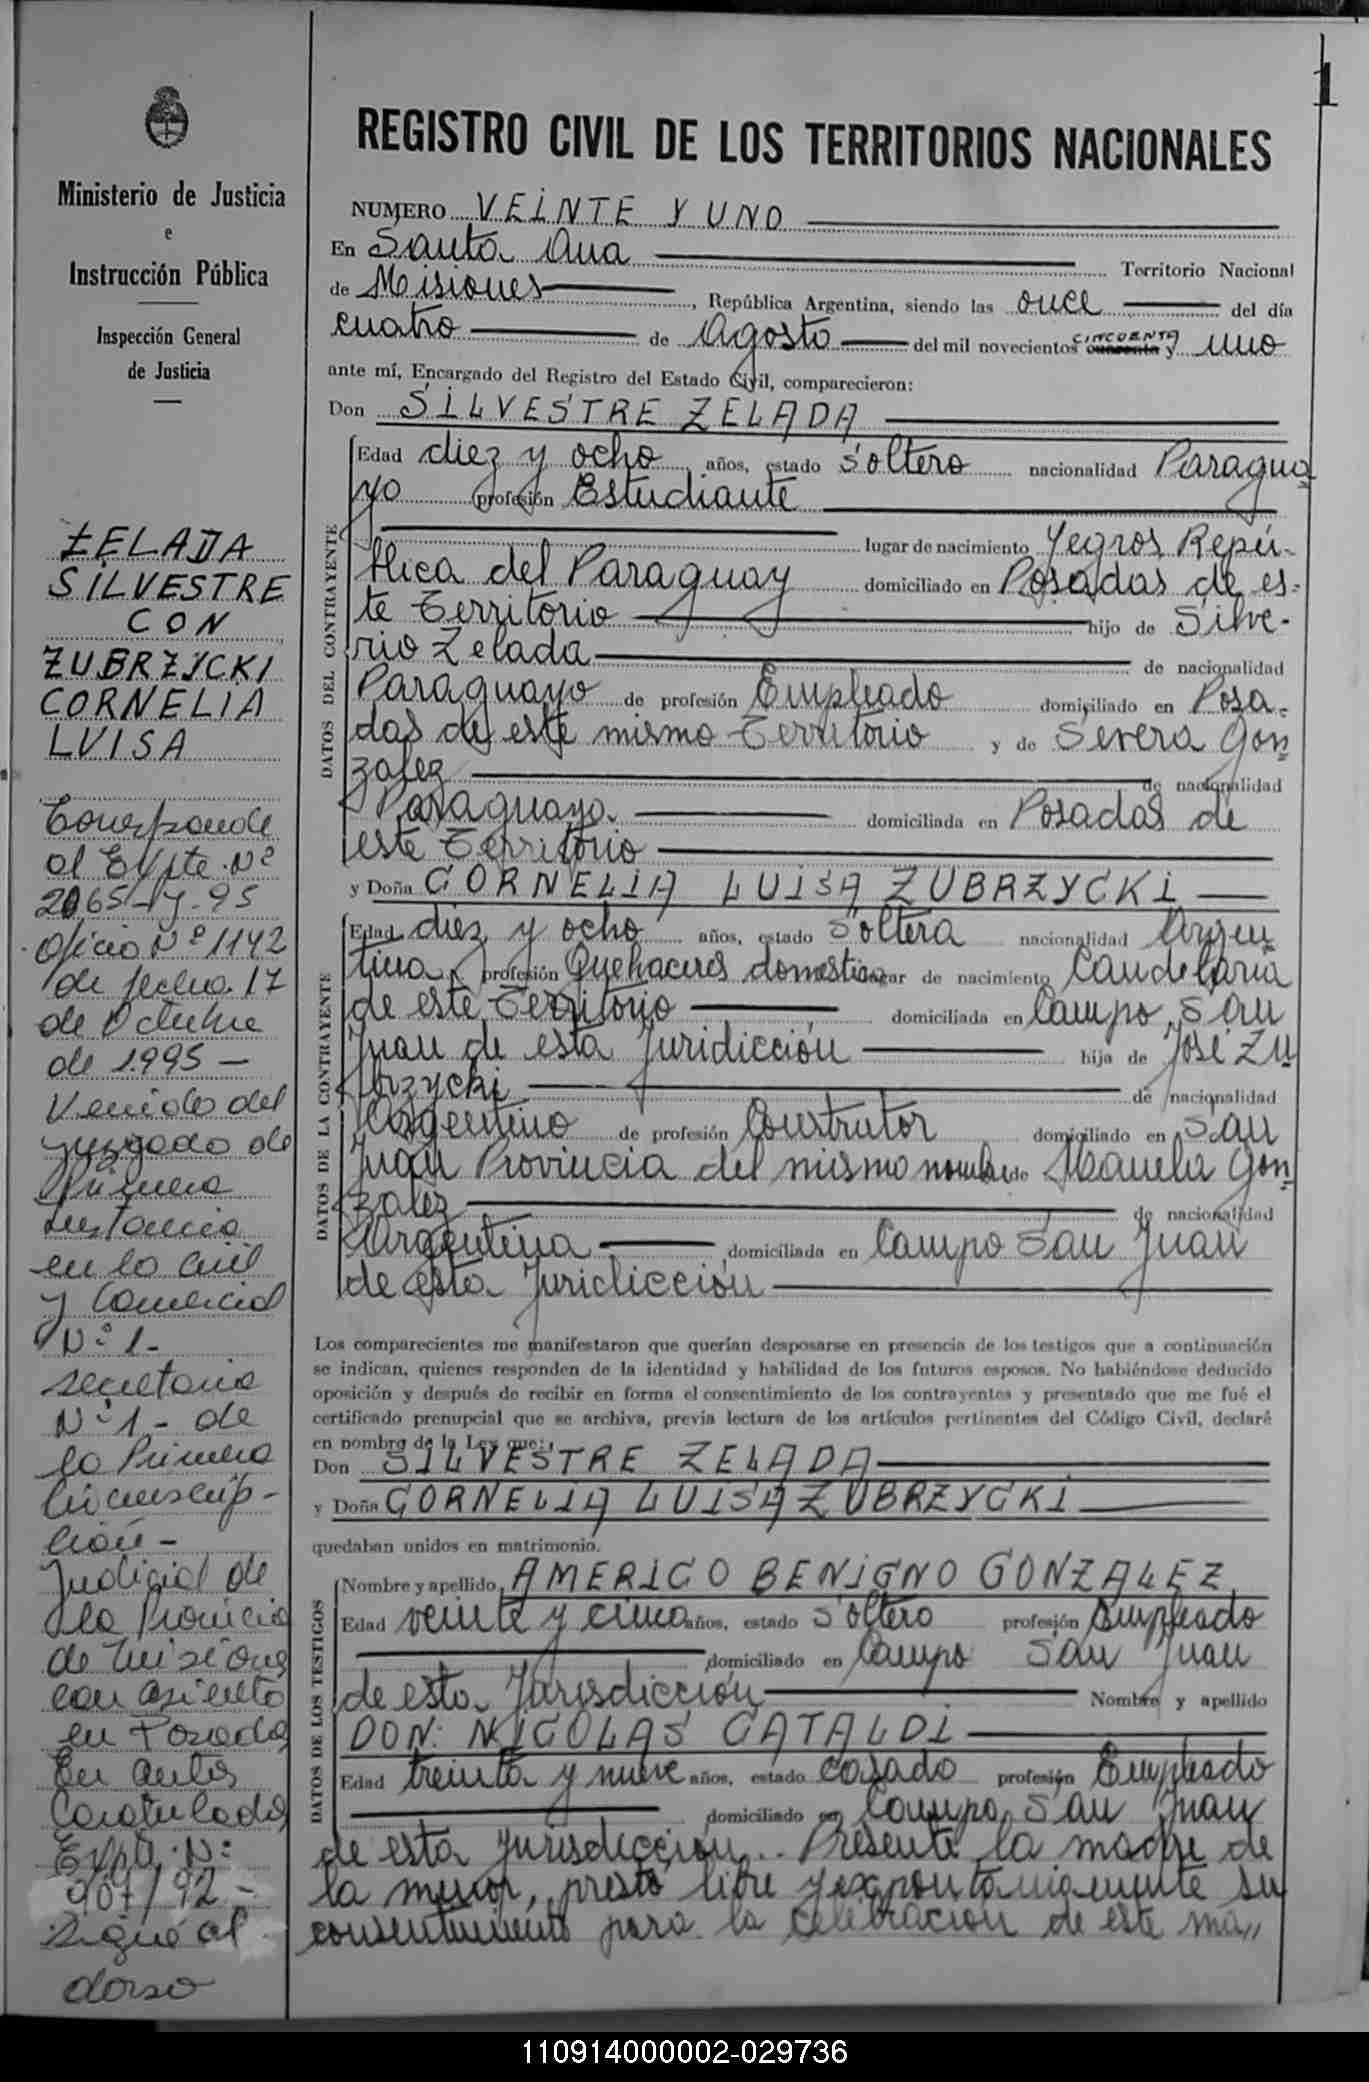 1
Ministerio de Justicia
e
Instrucción Pública
Inspección General
de Justicia
ZELADA
SILVESTRE
CON
ZUBRZYCKI
CORNELIA
LUISA
Corresponde
al Expte. Nº
2065-y-95
Oficio Nº 1142
de fecha 17
de Octubre
de 1.995 -
Venido del
Juzgado de
Primera
Instancia
en lo Civil
y Comercial
Nº 1 -
Secretaria
Nº 1 - de
la Primera
Circunscrip-
ción -
Judicial de
la Provincia
de Misiones
con asiento
en Posadas
En autos
Caratulados
Expte. Nº
907/92 -
Sigue al
dorso
REGISTRO CIVIL DE LOS TERRITORIOS NACIONALES
NUMERO VEINTE Y UNO
En Santa Ana Territorio Nacional
de Misiones, República Argentina, siendo las once del día
cuatro de Agosto del mil novecientos CINCUENTA y uno
ante mí, Encargado del Registro del Estado Civil, comparecieron:
Don SILVESTRE ZELADA
DATOS DEL CONTRAYENTE
Edad diez y ocho años, estado soltero nacionalidad Paragua
yo profesión Estudiante
lugar de nacimiento Yegros Repú-
blica del Paraguay domiciliado en Posadas de es-
te Territorio hijo de Silve-
rio Zelada de nacionalidad
Paraguayo de profesión Empleado domiciliado en Posa-
das de este mismo Territorio y de Severa Gon
zalez de nacionalidad
Paraguaya domiciliada en Posadas de
este Territorio
y Doña CORNELIA LUISA ZUBRZYCKI
DATOS DE LA CONTRAYENTE
Edad diez y ocho años, estado soltera nacionalidad Argen
tina profesión Quehaceres domesticos lugar de nacimiento Candelaria
de este Territorio domiciliada en Campo San
Juan de esta Juridicción hija de José Zu
brzycki de nacionalidad
Argentino de profesión Construtor domiciliado en San
Juan Provincia del mismo nombre de Manuela Gon
zalez de nacionalidad
Argentina domiciliada en Campo San Juan
de esta Juridicción
Los comparecientes me manifestaron que querían desposarse en presencia de los testigos que a continuación
se indican, quienes responden de la identidad y habilidad de los futuros esposos. No habiéndose deducido
oposición y después de recibir en forma el consentimiento de los contrayentes y presentado que me fué el
certificado prenupcial que se archiva, previa lectura de los artículos pertinentes del Código Civil, declaré
en nombre de la Ley que:
Don SILVESTRE ZELADA
y Doña CORNELIA LUISA ZUBRZYCKI
quedaban unidos en matrimonio.
DATOS DE LOS TESTIGOS
Nombre y apellido AMERICO BENIGNO GONZALEZ
Edad veinte y cinco años, estado soltero profesión Empleado
domiciliado en Campo San Juan
de esta Jurisdicción Nombre y apellido
DON: NICOLAS CATALDI
Edad treinta y nueve años, estado casado profesión Empleado
domiciliado en Campo San Juan
de esta Jurisdiccion.. Presente la madre de
la menor, prestó libre y expontaniamente su
consentimiento para la celebracion de este ma,,
110914000002-029736